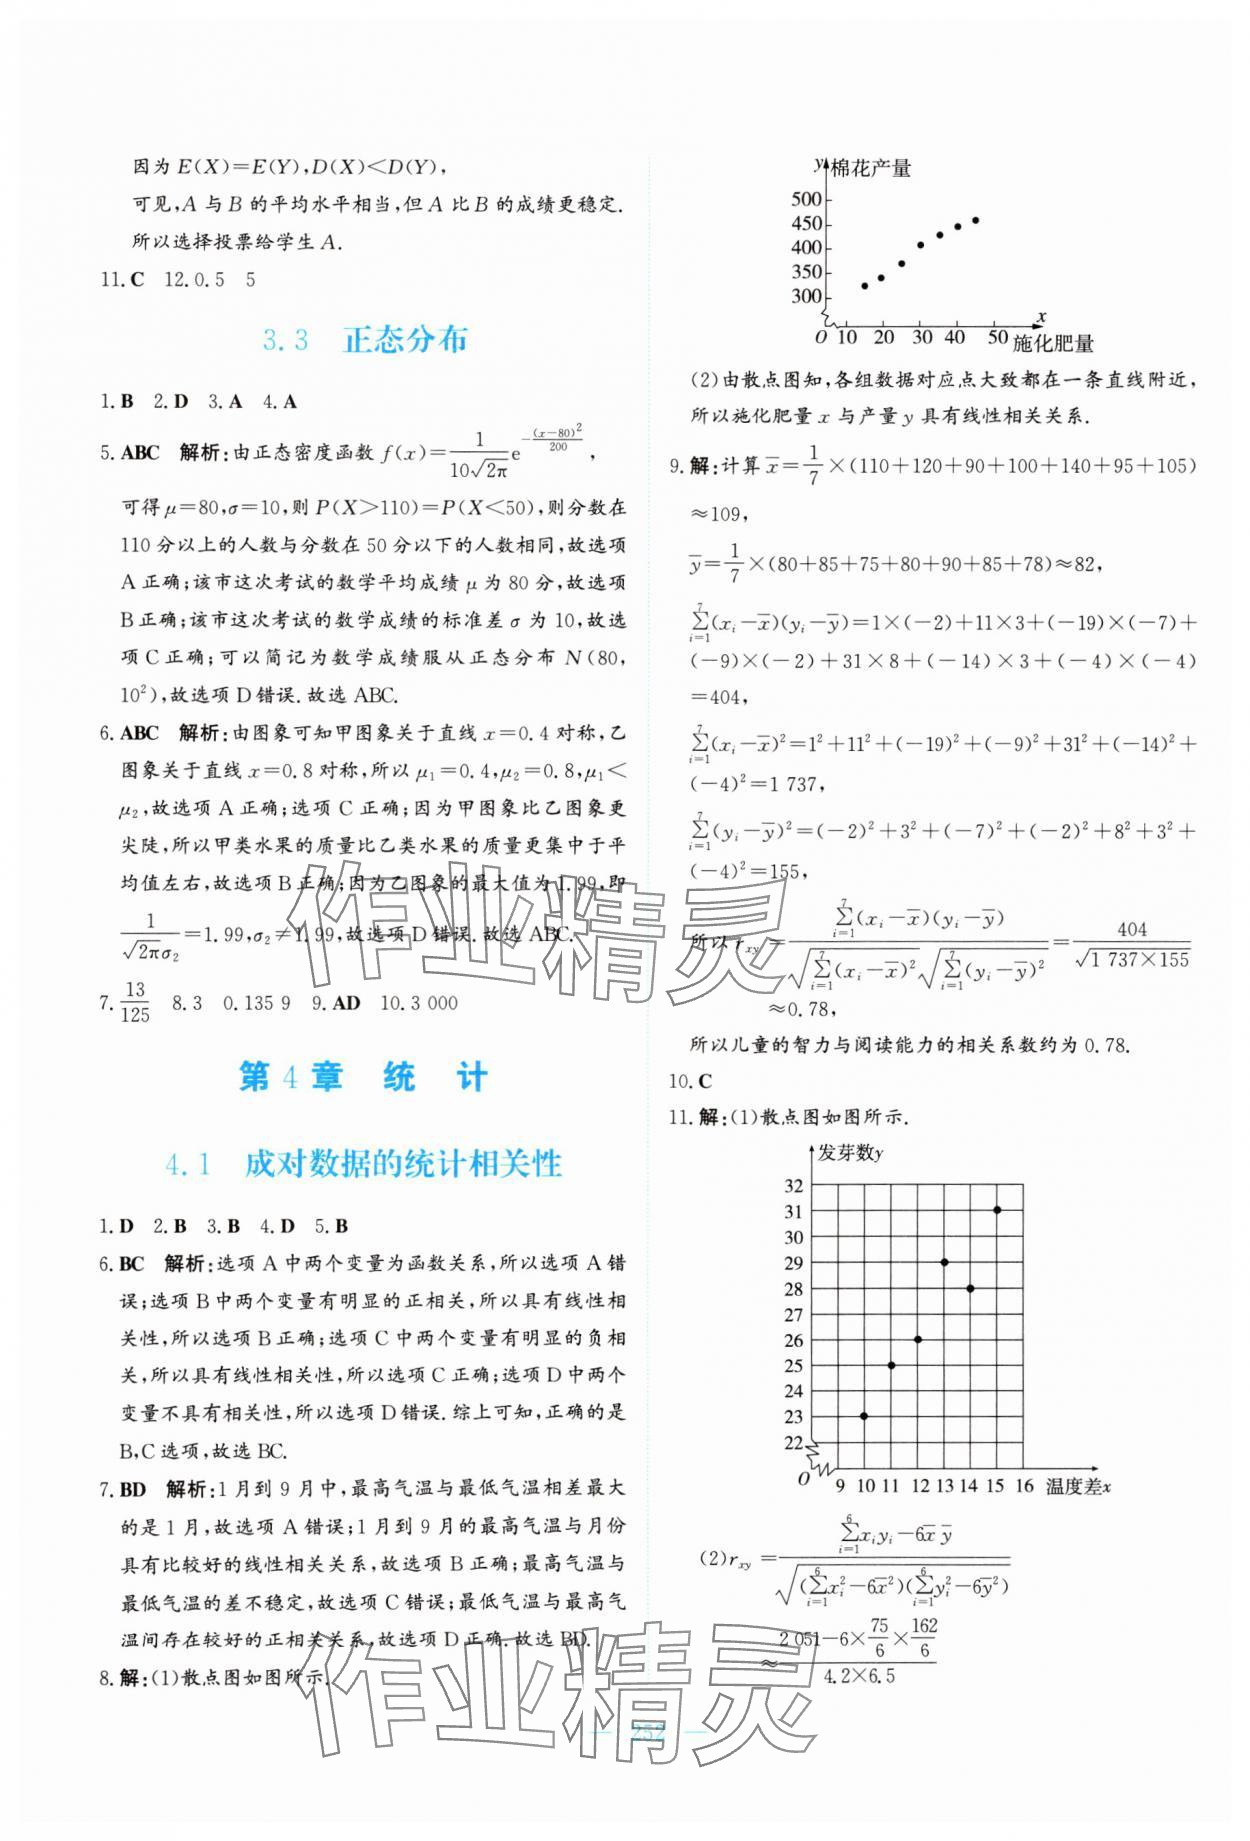 因为 E(X)=E(Y),D(X)<D(Y),
可见,A 与 B 的平均水平相当,但 A 比 B 的成绩更稳定.
所以选择投票给学生 A.
11.C 12.0.5 5
3.3 正态分布
1.B 2.D 3.A 4.A
5.ABC 解析:由正态密度函数 f(x)=\frac{1}{10\sqrt{2π}}e^{-\frac{(x-80)^2}{200}},
可得 μ=80,σ=10,则 P(X>110)=P(X<50),则分数在
110 分以上的人数与分数在 50 分以下的人数相同,故选项
A 正确;该市这次考试的数学平均成绩 μ 为 80 分,故选项
B 正确;该市这次考试的数学成绩的标准差 σ 为 10,故选
项 C 正确;可以简记为数学成绩服从正态分布 N(80,
10²),故选项 D 错误.故选 ABC.
6.ABC 解析:由图象可知甲图象关于直线 x=0.4 对称,乙
图象关于直线 x=0.8 对称,所以 μ₁=0.4,μ₂=0.8,μ₁<
μ₂,故选项 A 正确;选项 C 正确;因为甲图象比乙图象更
尖陡,所以甲类水果的质量比乙类水果的质量更集中于平
均值左右,故选项 B 正确;因为乙图象的最大值为 1.99,即
\frac{1}{\sqrt{2π}σ₂}=1.99,σ₂≠1.99,故选项 D 错误.故选 ABC.
7.\frac{13}{125} 8.3 0.135 9 9.AD 10.3 000
第 4 章 统 计
4.1 成对数据的统计相关性
1.D 2.B 3.B 4.D 5.B
6.BC 解析:选项 A 中两个变量为函数关系,所以选项 A 错
误;选项 B 中两个变量有明显的正相关,所以具有线性相
关性,所以选项 B 正确;选项 C 中两个变量有明显的负相
关,所以具有线性相关性,所以选项 C 正确;选项 D 中两个
变量不具有相关性,所以选项 D 错误.综上可知,正确的是
B,C 选项,故选 BC.
7.BD 解析:1 月到 9 月中,最高气温与最低气温相差最大
的是 1 月,故选项 A 错误;1 月到 9 月的最高气温与月份
具有比较好的线性相关关系,故选项 B 正确;最高气温与
最低气温的差不稳定,故选项 C 错误;最低气温与最高气
温间存在较好的正相关关系,故选项 D 正确.故选 BD.
8.解:(1)散点图如图所示.
y 棉花产量
500
450
400
350
300
O 10 20 30 40 50 x
施化肥量
(2)由散点图知,各组数据对应点大致都在一条直线附近,
所以施化肥量 x 与产量 y 具有线性相关关系.
9.解:计算 \overline{x}=\frac{1}{7}×(110+120+90+100+140+95+105)
≈109,
\overline{y}=\frac{1}{7}×(80+85+75+80+90+85+78)≈82,
\sum_{i=1}^{7}(x_i-\overline{x})(y_i-\overline{y})=1×(-2)+11×3+(-19)×(-7)+
(-9)×(-2)+31×8+(-14)×3+(-4)×(-4)
=404,
\sum_{i=1}^{7}(x_i-\overline{x})²=1²+11²+(-19)²+(-9)²+31²+(-14)²+
(-4)²=1 737,
\sum_{i=1}^{7}(y_i-\overline{y})²=(-2)²+3²+(-7)²+(-2)²+8²+3²+
(-4)²=155,
所以 r_{xy}=\frac{\sum_{i=1}^{7}(x_i-\overline{x})(y_i-\overline{y})}{\sqrt{\sum_{i=1}^{7}(x_i-\overline{x})²}\sqrt{\sum_{i=1}^{7}(y_i-\overline{y})²}}=\frac{404}{\sqrt{1 737×155}}
≈0.78,
所以儿童的智力与阅读能力的相关系数约为 0.78.
10.C
11.解:(1)散点图如图所示.
发芽数y
32
31
30
29
28
27
26
25
24
23
22
O 9 10 11 12 13 14 15 16 温度差x
(2)r_{xy}=\frac{\sum_{i=1}^{6}x_iy_i-6\overline{x}\,\overline{y}}{\sqrt{(\sum_{i=1}^{6}x_i²-6\overline{x}²)(\sum_{i=1}^{6}y_i²-6\overline{y}²)}}
≈\frac{2 051-6×\frac{75}{6}×\frac{162}{6}}{4.2×6.5}
252
作业精灵
作业精灵